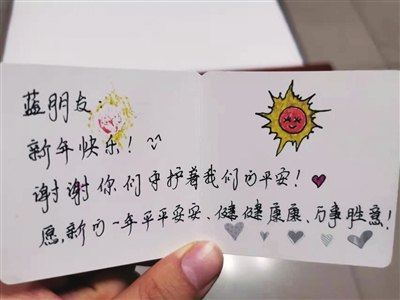 蓝朋友:
新年快乐!
谢谢你们守护着我们的平安!
愿,新的一年平平安安、健健康康、万事胜意!